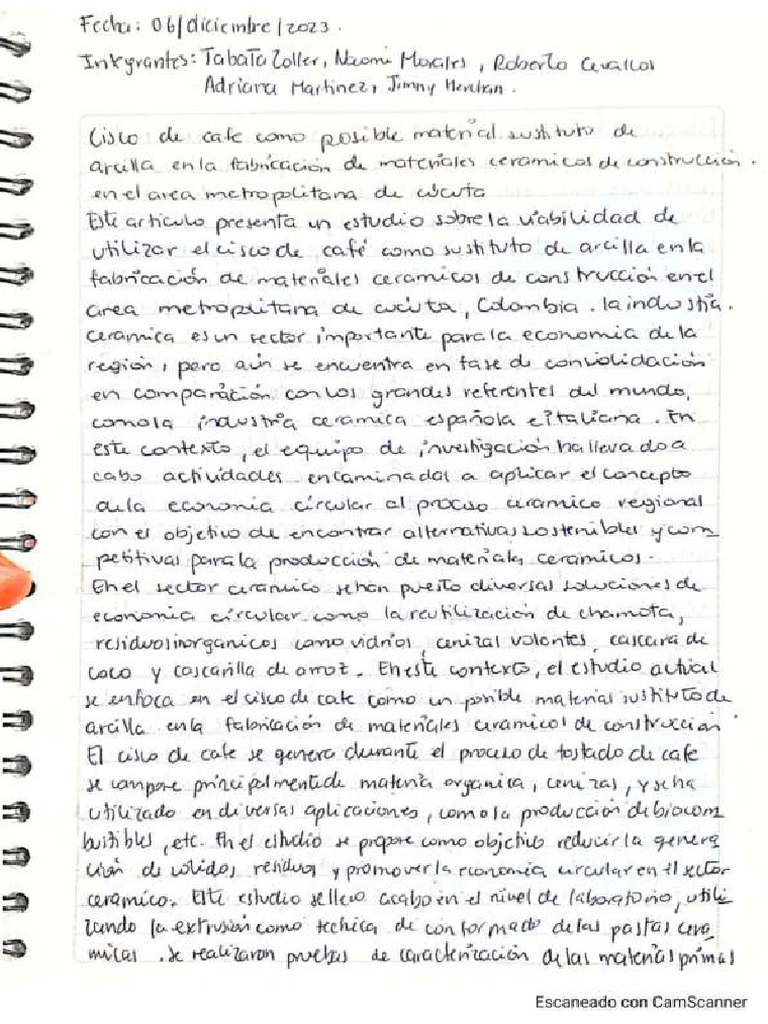 Fecha: 06/diciembre/2023.
Integrantes: Tabata Zoller, Naomi Morales, Roberto Cevallos
Adriana Martinez, Jimmy
Cisco de cafe como posible material sustituto de
arcilla en la fabricación de materiales ceramicos de construcción.
en el area metropolitana de cúcuta
Este articulo presenta un estudio sobre la viabilidad de
utilizar el cisco de café como sustituto de arcilla en la
fabricación de materiales ceramicos de construcción en el
area metropolitana de cucuta, Colombia. la industria.
ceramica es un sector importante para la economia de la
región, pero aún se encuentra en fase de consolidación
en comparación con los grandes referentes del mundo,
como la industria ceramica española e italiana. En
este contexto, el equipo de investigación ha llevado a
cabo actividades encaminadas a aplicar el concepto
de la economia circular al proceso ceramico regional
con el objetivo de encontrar alternativas sostenibles y com
petitivas para la producción de materiales ceramicos.
En el sector ceramico se han puesto diversas soluciones de
economia circular como la reutilización de chamota,
residuos inorganicos como vidrios, cenizas volantes, cascara de
coco y cascarilla de arroz. En este contexto, el estudio actual
se enfoca en el cisco de cafe como un posible material sustituto de
arcilla en la fabricación de materiales ceramicos de construcción
El cisco de cafe se genera durante el proceso de tostado de cafe
se compone principalmente de materia organica, cenizas, y se ha
utilizado en diversas aplicaciones, como la producción de biocom
bustibles, etc. En el estudio se propone como objetivo reducir la genera
ción de solidos residuos y promover la economia circular en el sector
ceramico. Este estudio se llevo acabo en el nivel de laboratorio, utili
zando la extrusión como técnica de conformado de las pastas cera
micas. Se realizaron pruebas de caracterización de las materias primas
Escaneado con CamScanner